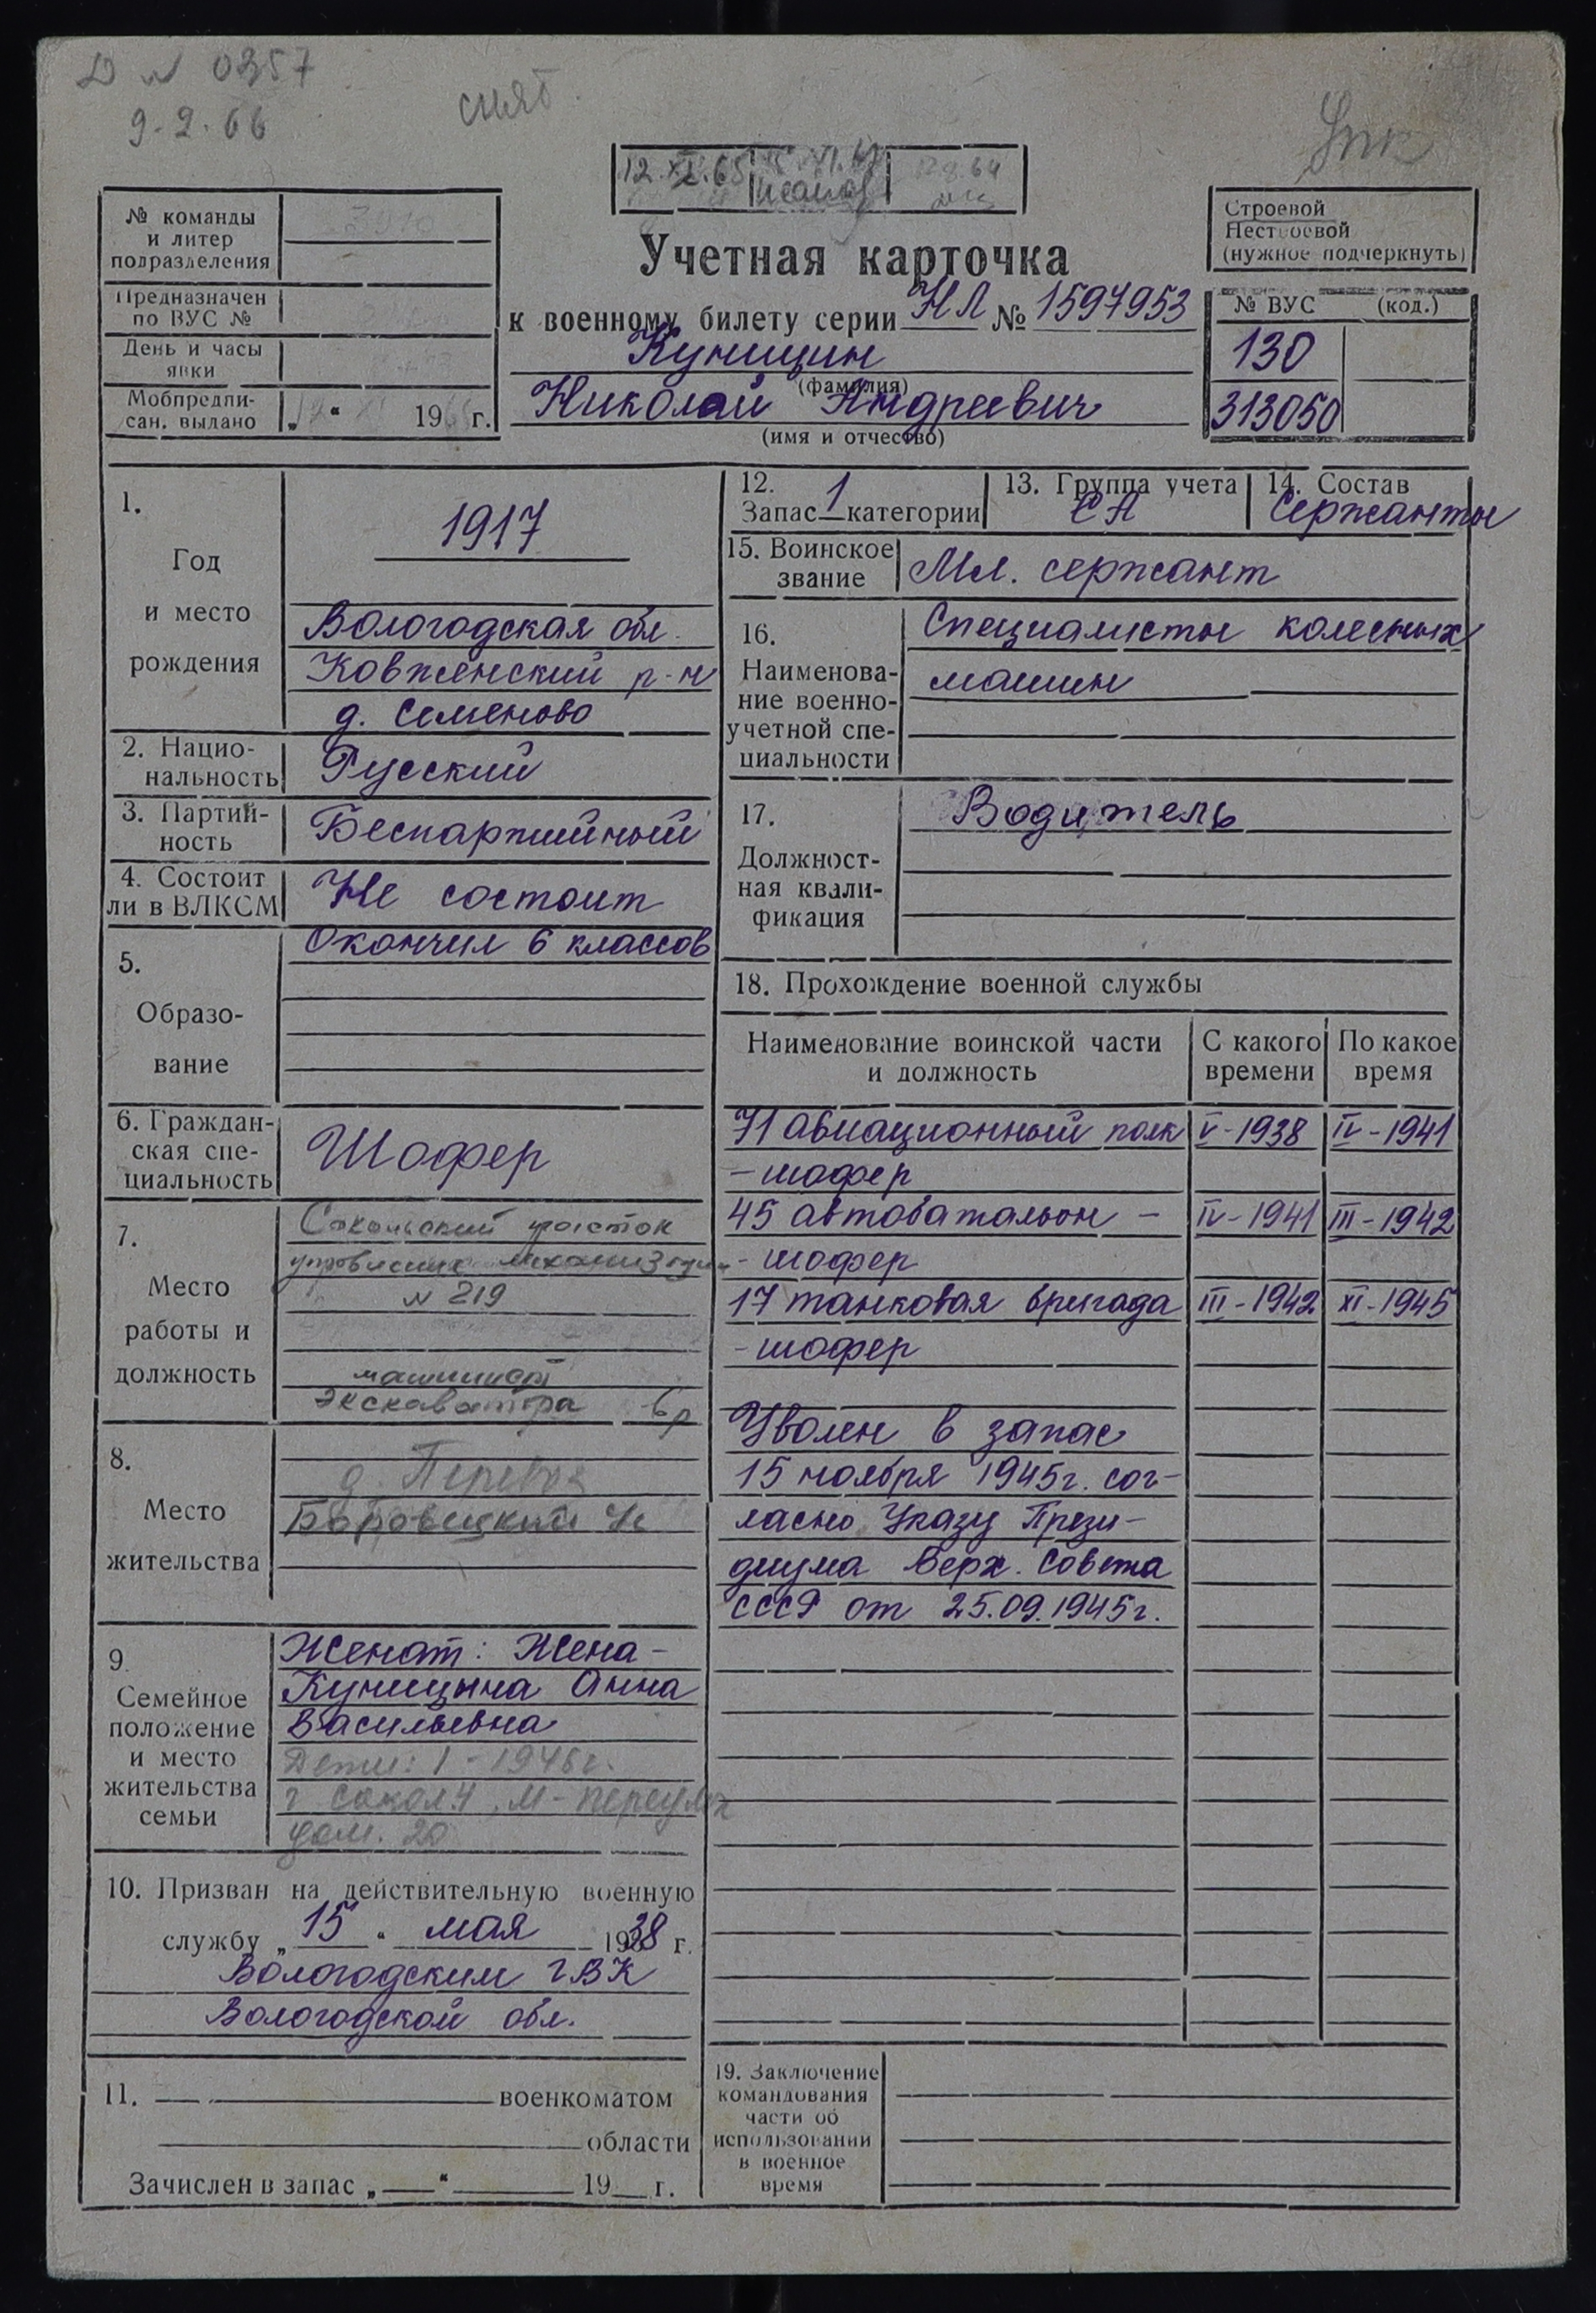 D N 0357
9.2.66
снят
12.XI.65
№ команды
и литер
подразделения
Предназначен
по ВУС №
День и часы
явки
Мобпредпи-
сан. выдано „ “ 196 г.
Учетная карточка
к военному билету серии НЛ № 1597953
Куницин
(фамилия)
Николай Андреевич
(имя и отчество)
Строевой
Нестроевой
(нужное подчеркнуть)
№ ВУС (код.)
130
313050
1.
Год
и место
рождения
1917
Вологодская обл.
Ковженский р-н
д. Семеново
2. Нацио-
нальность
Русский
3. Партий-
ность
Беспартийный
4. Состоит
ли в ВЛКСМ
Не состоит
5.
Образо-
вание
Окончил 6 классов
6. Граждан-
ская спе-
циальность
Шофер
7.
Место
работы и
должность
Сокольский участок
управления механизации
N 219
машинист
экскаватора 6 р
8.
Место
жительства
д.
9.
Семейное
положение
и место
жительства
семьи
Женат: Жена -
Куницына Анна
Васильевна
Дети: 1 - 1946г.
дом. 20
10. Призван на действительную военную
службу „ 15 “ мая 1938 г.
Вологодским ГВК
Вологодской обл.
11. военкоматом
области
Зачислен в запас „ “ 19 г.
12.
Запас 1 категории
13. Группа учета
СА
14. Состав
Сержанты
15. Воинское
звание
Мл. сержант
16.
Наименова-
ние военно-
учетной спе-
циальности
Специалисты колесных
машин
17.
Должност-
ная квали-
фикация
Водитель
18. Прохождение военной службы
Наименование воинской части
и должность
С какого
времени
По какое
время
71 авиационный полк V-1938 IV-1941
- шофер
45 автобатальон - IV-1941 III-1942
- шофер
17 танковая бригада III-1942 XI-1945
- шофер
Уволен в запас
15 ноября 1945г. сог-
ласно Указу Прези-
диума Верх. Совета
СССР от 25.09.1945г.
19. Заключение
командования
части об
использовании
в военное
время